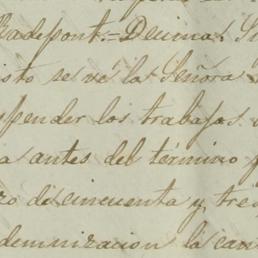 Radepont.= Decima. Si
isto se vé la Señora
spender los trabajos
a antes del término
ro de cincuenta y tres
demnizacion la can